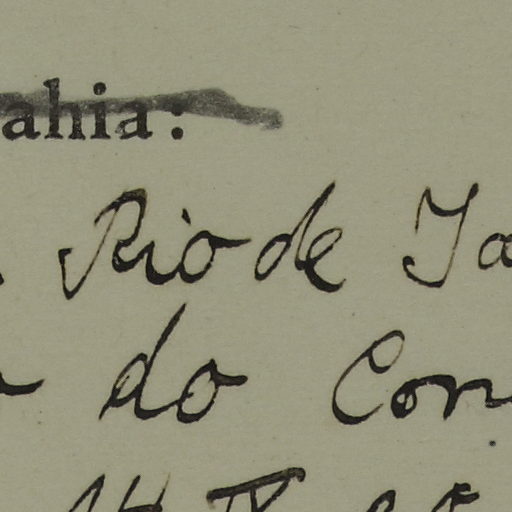 ahia:
Rio de Ja
do Con